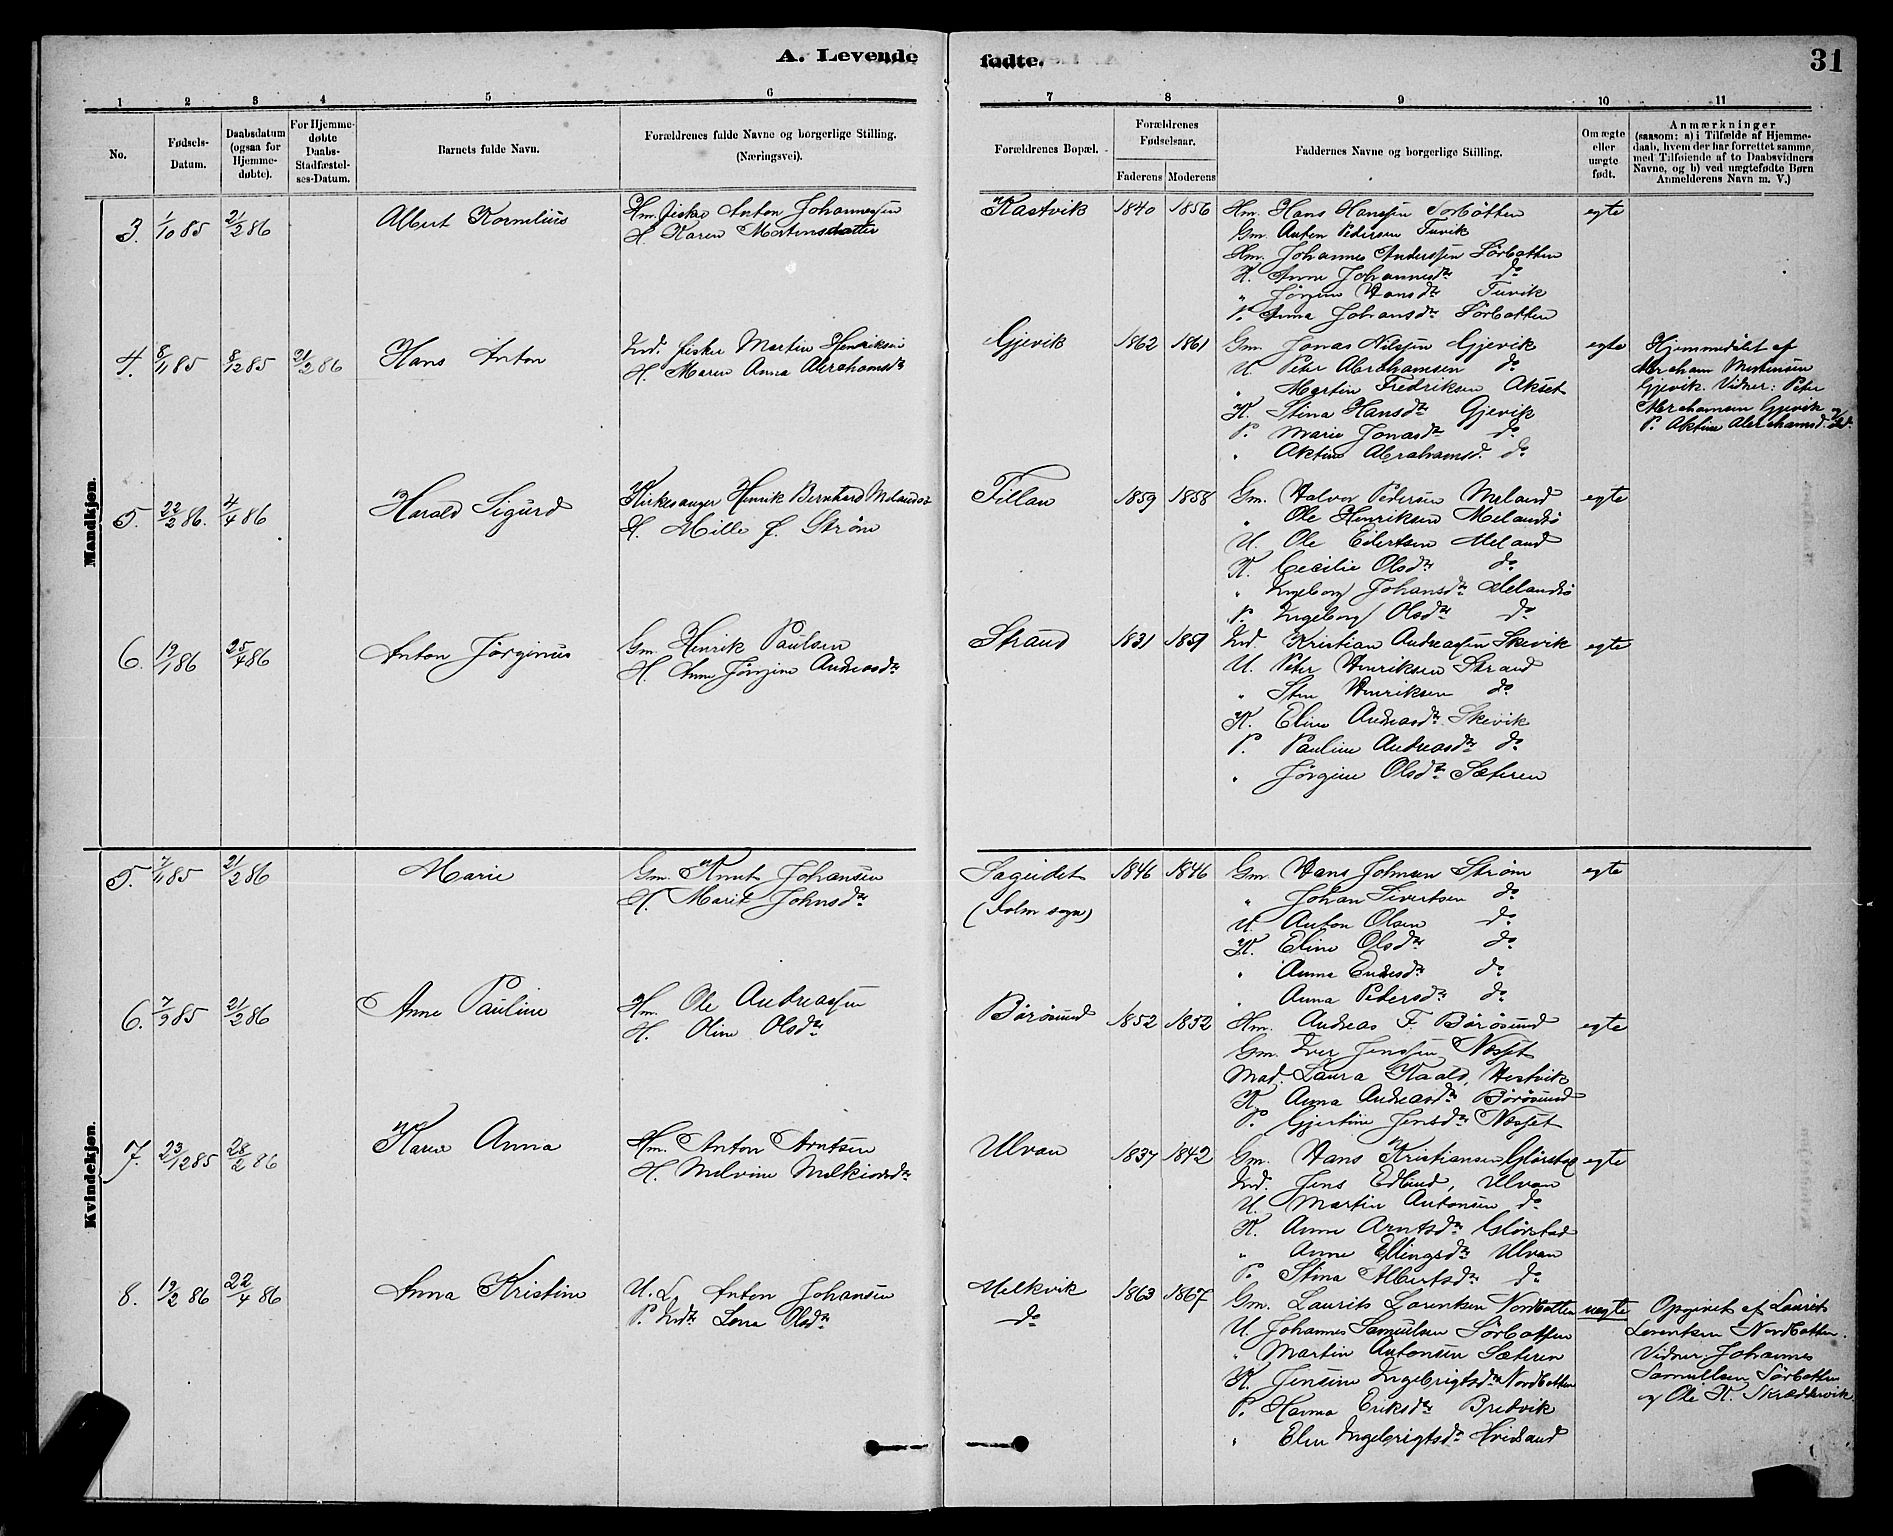 A. Levende fødte.
31
1 2 3 4 5 6 7 8 9 10 11
No.
Fødsels-Datum.
Daabsdatum (ogsaa for Hjemme-døbte).
For Hjemme-døbte Daabs-Stadfæstel-ses-Datum.
Barnets fulde Navn.
Forældrenes fulde Navne og borgerlige Stilling. (Næringsvei).
Forældrenes Bopæl.
Forældrenes Fødselsaar.
Faderens Moderens
Faddernes Navne og borgerlige Stilling.
Om ægte eller uægte født.
Anmærkninger
(saasom: a) i Tilfælde af Hjemme-
daab, hvem der har forrettet samme,
med Tilføiende af to Daabsvidners
Navne, og b) ved uægtefødte Børn
Anmelderens Navn m. V.)
Mandkjøn.
3. 1/10 85 21/2 86 Albert Kornelius
Hm. fisker Anton Johannessen
H. Karen Martinsdatter
Kastvik 1840 1856 egte
Hm. Hans Hanssen Sørbotten
Gm. Anton Pedersen Tuvik
Hm. Johannes Anderssen Sørbotten
K. Anne Johannesdr do
" Jørgine Hansdr Tuvik
P. Anna Johansdr Sørbotten
4. 8/11 85 8/12 85 21/2 86 Hans Anton
Ind. fisker Martin Henriksen
H. Maren Anna Abrahamsdr
Gjevik 1862 1861 egte
Gm. Jonas Nilssen Gjevik
U. Peter Abrahamsen do
" Martin Fredriksen Akset
K. Stina Hansdr Gjevik
P. Marie Jonasdr do
" Aktine Abrahamsd. do
Hjemmedøbt af
Abraham Mortensen
Gjevik. Vidner: Peter
Abrahamsen Gjevik og
P. Aktine Abrahamsd. do.
5. 22/2 86. 4/4 86 Harald Sigurd
Kirkesanger Henrik Bernhard Melandsø
H. Mille f. Strøm
Fillan 1859 1858 egte
Gm. Halvor Pedersen Meland
" Ole Henriksen Melandsø
U. Ole Eilertsen Meland
K. Cecilie Olsdr do
" Ingeborg Johansdr Melandsø
P. Ingeborg Olsdr do
6. 19/1 86 25/4 86 Anton Jørginus
Gm. Henrik Paulsen
H. Anne Jørgine Andreasdr
Strand 1831 1851 egte
Ind. Kristian Andreassen Skevik
U. Peter Henriksen Strand
" Sten Henriksen do
K. Eline Andreasdr Skevik
P. Pauline Andreasdr do
" Jørgine Olsdr Sæteren
Kvindekjøn.
5. 7/11 85 21/2 86 Marie
Gm. Knut Johansen
H. Marit Johnsdr
Sageidet
(Holm sogn)
1846 1846 egte
Gm. Hans Johnsen Strøm
" Johan Sivertsen do
U. Anton Olsen do
K. Eline Olsdr do
" Anna Endresdr do
" Anna Petersdr do
6. 7/9 85 21/2 86 Anne Pauline
Hm. Ole Andreassen
H. Oline Olsdr
Børøsund 1852 1852 egte
Hm. Andreas F. Børøsund
Gm. Iver Jenssen Nesset
Mad. Laura Kaald, Hestvik
K. Anna Andreasdr Børøsund
P. Gjertine Jensdr Nesset
7. 23/12 85 28/2 86 Karen Anna
Hm. Anton Arntsen
H. Melvine Melkiorsdr
Ulvan 1837 1842 egte
Gm. Hans Kristiansen Glørstad
Ind. Jens Edlund, Ulvan
U. Martin Antonsen do
K. Anne Arntsdr Glørstad
" Anne Ellingsdr Ulvan
P. Stina Albertsdr do
8. 19/2 86 22/4 86 Anna Kristine
U. L. Anton Johansen
P. Indr Lena Olsdr
Melkvik
do
1863 1867 uegte
Gm. Laurits Lorentsen Nordbotten
U. Johannes Samuelsen Sørbotten
" Martin Antonsen Sæteren
K. Jensine Ingebrigtsdr Nordbotten
P. Hanna Eriksdr Bredvik
" Elen Ingebrigtsdr Hvidsand
Opgivet af Laurits
Lorentsen Nordbotten.
Vidner: Johannes
Samuelsen Sørbotten
og Ole K. Skræddervik